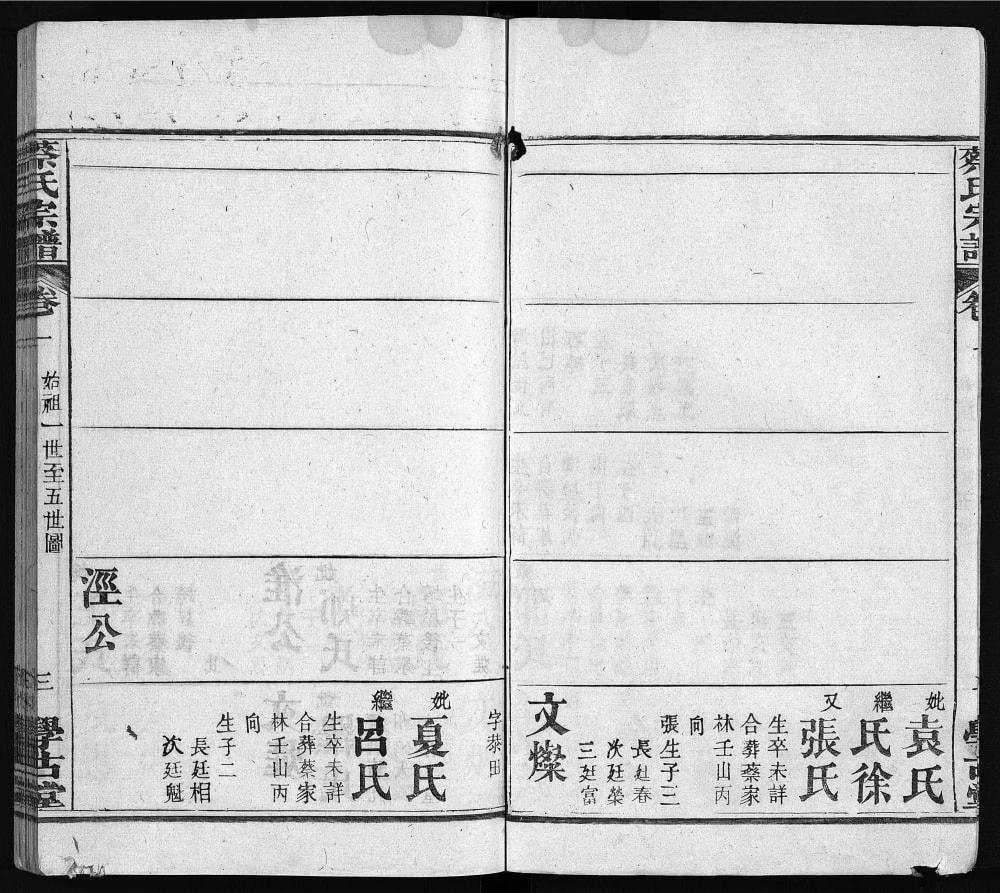 蔡氏宗譜
妣袁氏
繼氏徐
又張氏
生卒未詳
合葬蔡家
林壬山丙
向
張生子三
長廷春
次廷榮
三廷富
文燦
字恭田
妣夏氏
繼呂氏
生卒未詳
合葬蔡家
林壬山丙
向
生子二
長廷相
次廷魁
涇公
蔡氏宗譜
卷一
始祖一世至五世圖
三
學古堂